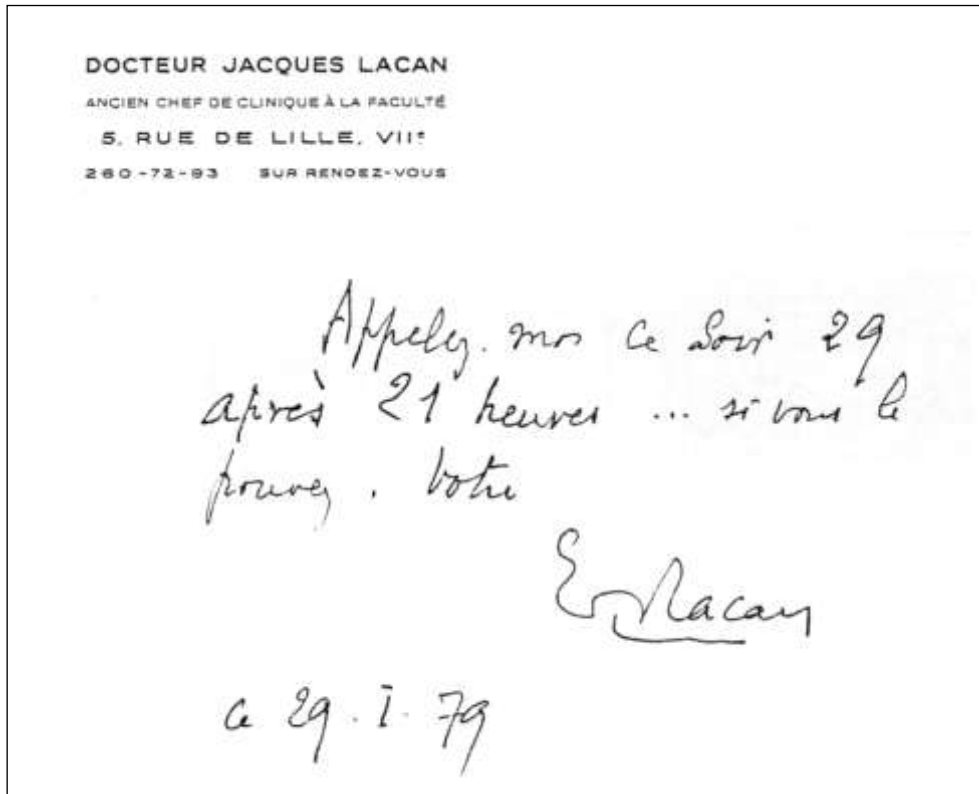 DOCTEUR JACQUES LACAN
ANCIEN CHEF DE CLINIQUE À LA FACULTÉ
5, RUE DE LILLE, VIIᵉ
260-72-93 SUR RENDEZ-VOUS
Appelez-moi ce soir 29
après 21 heures ... si vous le
pouvez. Votre
Lacan
ce 29.I.79